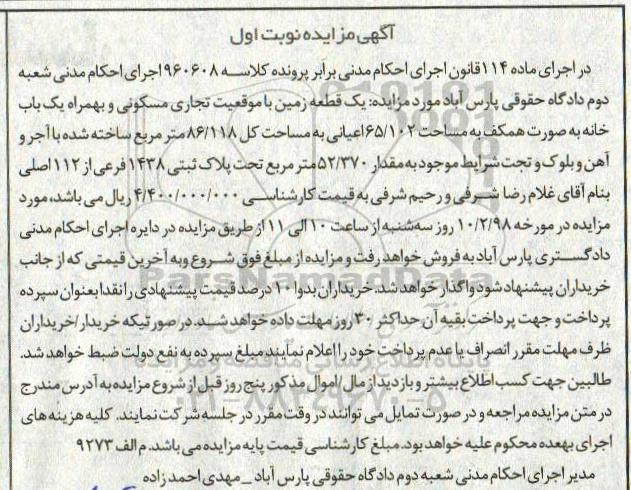 آگهی مزایده نوبت اول
در اجرای ماده ۱۱۴ قانون اجرای احکام مدنی برابر پرونده کلاسه ۹۶۰۶۰۸ اجرای احکام مدنی شعبه
دوم دادگاه حقوقی پارس آباد مورد مزایده: یک قطعه زمین با موقعیت تجاری مسکونی و بهمراه یک باب
خانه به صورت همکف به مساحت ۶۵/۱۰۲ اعیانی به مساحت کل ۸۶/۱۱۸ متر مربع ساخته شده با آجر و
آهن و بلوک و تحت شرایط موجود به مقدار ۵۲/۳۷۰ متر مربع تحت پلاک ثبتی ۱۴۳۸ فرعی از ۱۱۲ اصلی
بنام آقای غلام رضا شرفی و رحیم شرفی به قیمت کارشناسی ۴/۴۰۰/۰۰۰/۰۰۰ ریال می باشد، مورد
مزایده در مورخه ۱۰/۲/۹۸ روز سه شنبه از ساعت ۱۰ الی ۱۱ از طریق مزایده در دایره اجرای احکام مدنی
دادگستری پارس آباد به فروش خواهد رفت و مزایده از مبلغ فوق شروع وبه آخرین قیمتی که از جانب
خریداران پیشنهاد شود واگذار خواهد شد. خریداران بدوا ۱۰ درصد قیمت پیشنهادی را نقدا بعنوان سپرده
پرداخت و جهت پرداخت بقیه آن حداکثر ۳۰ روز مهلت داده خواهد شد. در صورتیکه خریدار/خریداران
ظرف مهلت مقرر انصراف یا عدم پرداخت خود را اعلام نمایند مبلغ سپرده به نفع دولت ضبط خواهد شد.
طالبین جهت کسب اطلاع بیشتر و بازدید از مال/اموال مذکور پنج روز قبل از شروع مزایده به آدرس مندرج
در متن مزایده مراجعه و در صورت تمایل می توانند در وقت مقرر در جلسه شرکت نمایند. کلیه هزینه های
اجرای بهعده محکوم علیه خواهد بود. مبلغ کارشناسی قیمت پایه مزایده می باشد. م الف ۹۲۷۳
مدیر اجرای احکام مدنی شعبه دوم دادگاه حقوقی پارس آباد _ مهدی احمدزاده
ParsNamadData